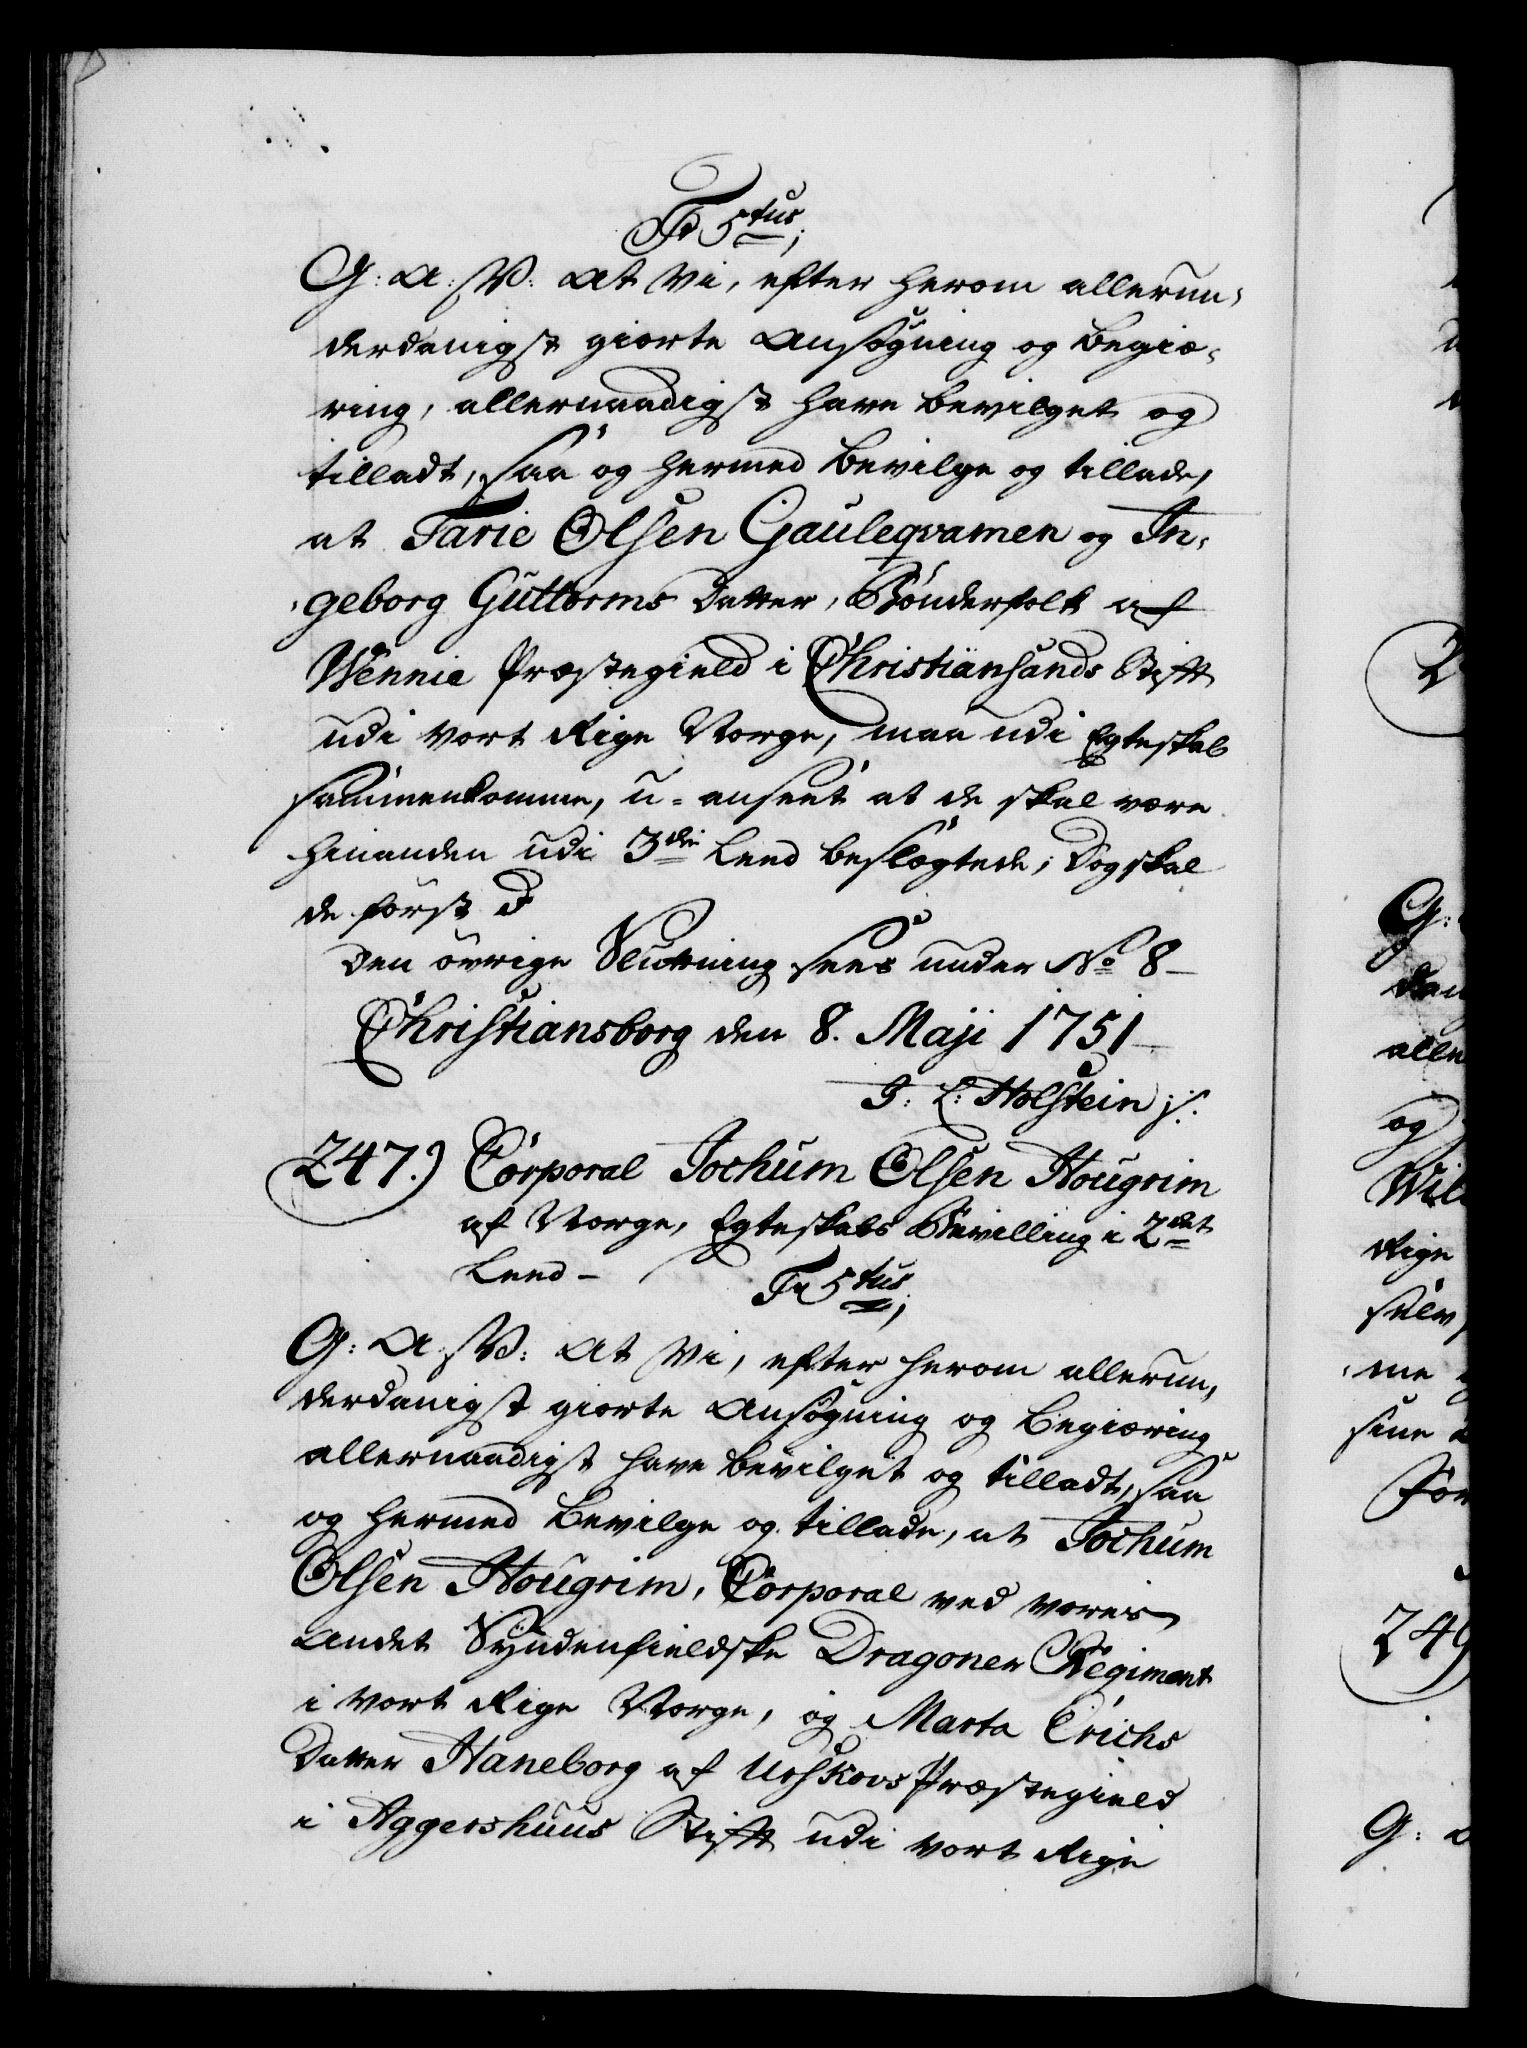 Fr 5tus;
G: A: W: At Vi, efter herom allerun-
derdanigst giorte Ansøgning og Begiæ-
ring, allernaadigst have bevilget og
tilladt, saa og hermed bevilge og tillade,
at Tarie Olsen Gauleqvamen og In-
geborg Guttorms Datter, Bønderfolk af
Wennie Præstegield i Christiansands Stift
udi Vort Rige Norge, maa udi Egteskab
sammenkomme, u-anseet at de skal være
hinanden udi 3die Leed beslægtede; Dog skal
de først
Den øvrige Slutning sees under No 8
Christiansborg den 8. Maji 1751
J: L: Holstein
247.) Corporal Jochum Olsen Hougrim
af Norge, Egteskabs Bevilling i 2det
Leed –
Fr 5tus;
G: A: W: At Vi, efter herom allerun-
derdanigst giorte Ansøgning og Begiæring
allernaadigst have bevilget og tilladt, saa
og hermed bevilge og tillade, at Jochum
Olsen Hougrim, Corporal ved vores
Andet Syndenfieldske Dragoner Regiment
i Vort Rige Norge, og Marta Erichs
Datter Haneborg af Urskovs Præstegield
i Aggershuus Stift udi Vort Rige